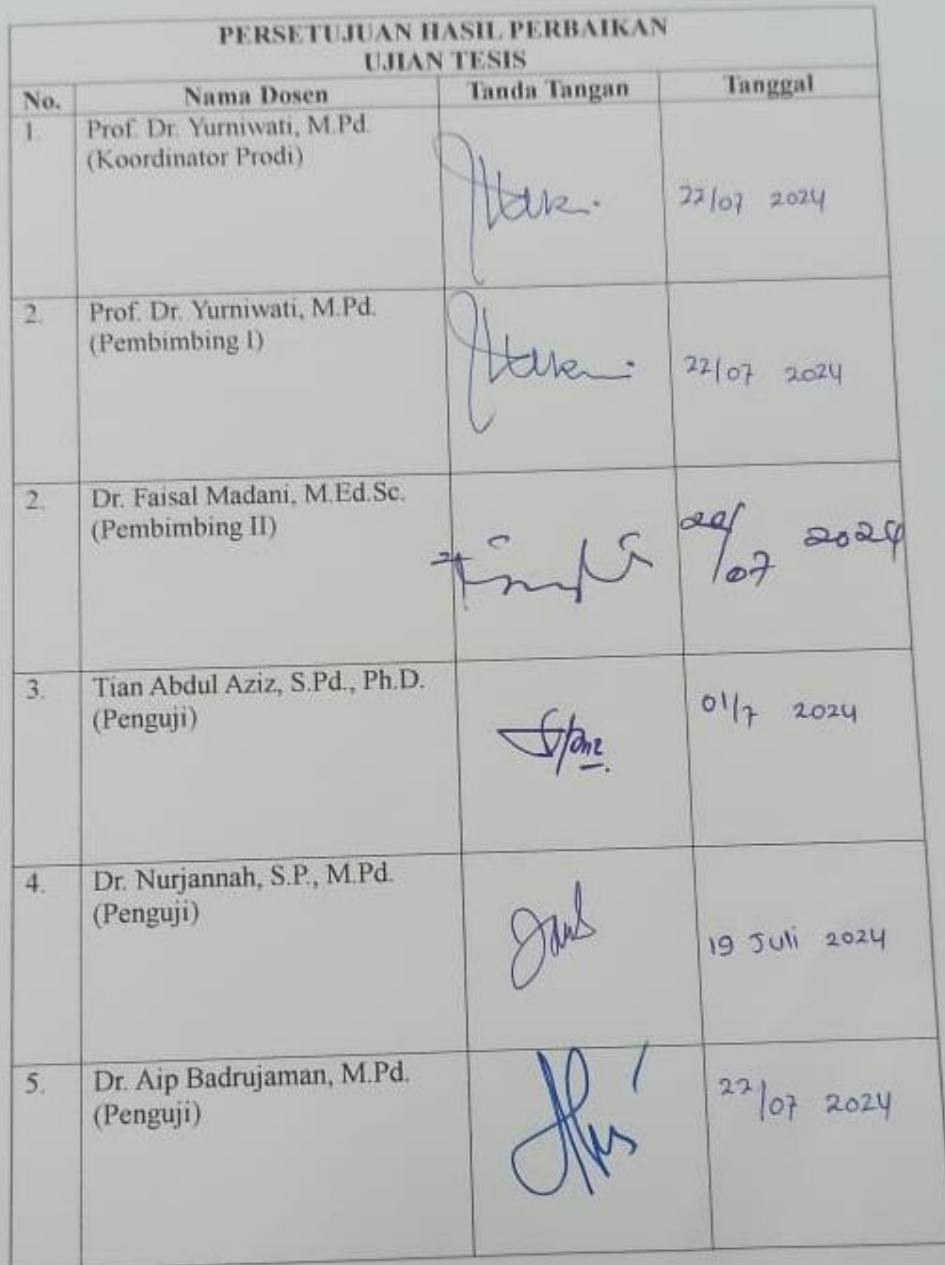 PERSETUJUAN HASIL PERBAIKAN
UJIAN TESIS
No. Nama Dosen Tanda Tangan Tanggal
1. Prof. Dr. Yurniwati, M.Pd.
(Koordinator Prodi)
22/07 2024
2. Prof. Dr. Yurniwati, M.Pd.
(Pembimbing I)
22/07 2024
2. Dr. Faisal Madani, M.Ed.Sc.
(Pembimbing II)
/07 2024
3. Tian Abdul Aziz, S.Pd., Ph.D.
(Penguji)
01/7 2024
4. Dr. Nurjannah, S.P., M.Pd.
(Penguji)
19 Juli 2024
5. Dr. Aip Badrujaman, M.Pd.
(Penguji)
22/07 2024